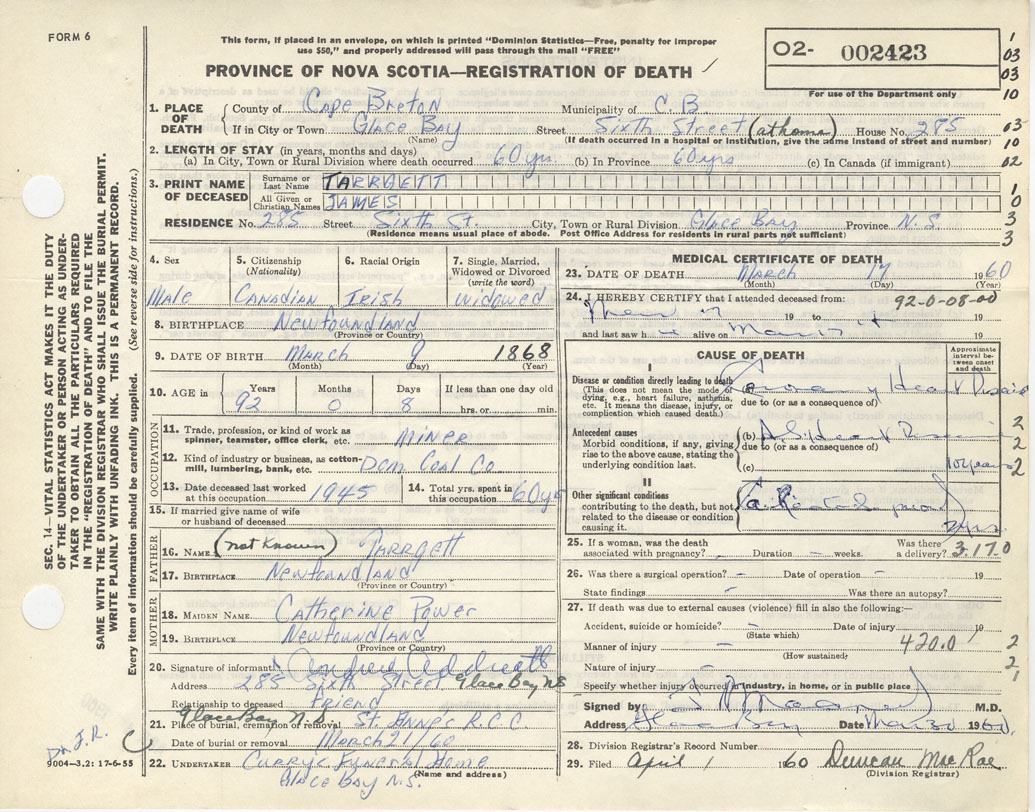 FORM 6
This form, if placed in an envelope, on which is printed "Dominion Statistics—Free, penalty for improper
use $50," and properly addressed will pass through the mail "FREE"
PROVINCE OF NOVA SCOTIA—REGISTRATION OF DEATH
O2- 002423
For use of the Department only
1
03
03
10
03
10
02
1
0
3
3
SEC. 14—VITAL STATISTICS ACT MAKES IT THE DUTY
OF THE UNDERTAKER OR PERSON ACTING AS UNDER-
TAKER TO OBTAIN ALL THE PARTICULARS REQUIRED
IN THE "REGISTRATION OF DEATH" AND TO FILE THE
SAME WITH THE DIVISION REGISTRAR WHO SHALL ISSUE THE BURIAL PERMIT.
WRITE PLAINLY WITH UNFADING INK. THIS IS A PERMANENT RECORD.
Every item of information should be carefully supplied. (See reverse side for instructions.)
1. PLACE OF DEATH County of Cape Breton Municipality of C.B.
If in City or Town Glace Bay Street Sixth Street (at home) House No. 285
(Name) (If death occurred in a hospital or institution, give the name instead of street and number)
2. LENGTH OF STAY (in years, months and days)
(a) In City, Town or Rural Division where death occurred 60 yrs. (b) In Province 60 yrs (c) In Canada (if immigrant)
3. PRINT NAME OF DECEASED Surname or Last Name TARRGETT
All Given or Christian Names JAMES
RESIDENCE No. 285 Street Sixth St. City, Town or Rural Division Glace Bay Province N.S.
(Residence means usual place of abode. Post Office Address for residents in rural parts not sufficient)
4. Sex Male
5. Citizenship (Nationality) Canadian
6. Racial Origin Irish
7. Single, Married, Widowed or Divorced (write the word) widowed
8. BIRTHPLACE Newfoundland
(Province or Country)
9. DATE OF BIRTH March 9 1868
(Month) (Day) (Year)
10. AGE in Years 92 Months 0 Days 8 If less than one day old hrs. or min.
OCCUPATION
11. Trade, profession, or kind of work as spinner, teamster, office clerk, etc. MINER
12. Kind of industry or business, as cotton-mill, lumbering, bank, etc. Dom Coal Co
13. Date deceased last worked at this occupation 1945
14. Total yrs. spent in this occupation 60 yrs
15. If married give name of wife or husband of deceased
FATHER
16. NAME (not known) Tarrgett
17. BIRTHPLACE Newfoundland
(Province or Country)
MOTHER
18. MAIDEN NAME Catherine Power
19. BIRTHPLACE Newfoundland
(Province or Country)
20. Signature of informant
Address 285 Sixth Street Glace Bay NS
Relationship to deceased Friend
Glace Bay N.S.
21. Place of burial, cremation or removal St. Annes R.C.C
Date of burial or removal March 21/60
22. UNDERTAKER Currys Funeral Home
Glace Bay N.S. (Name and address)
Dr. J.R.
9004—3.2: 17-6-55
MEDICAL CERTIFICATE OF DEATH
23. DATE OF DEATH March 17 1960
(Month) (Day) (Year)
24. I HEREBY CERTIFY that I attended deceased from: 92-0-08-00
19 to 19
and last saw h alive on 19
CAUSE OF DEATH
Approximate interval between onset and death
I
Disease or condition directly leading to death
(This does not mean the mode of dying, e.g., heart failure, asthenia, etc. It means the disease, injury, or complication which caused death.)
Heart Disease
due to (or as a consequence of)
Antecedent causes
Morbid conditions, if any, giving rise to the above cause, stating the underlying condition last.
(b) A.S. Heart Disease
due to (or as a consequence of)
(c) 10 years
2
2
2
II
Other significant conditions
contributing to the death, but not related to the disease or condition causing it.
2 yrs.
25. If a woman, was the death associated with pregnancy? Duration — weeks. Was there a delivery? 3.17.0
26. Was there a surgical operation? — Date of operation — 19
State findings — Was there an autopsy?
27. If death was due to external causes (violence) fill in also the following:—
Accident, suicide or homicide? — Date of injury 19
(State which)
Manner of injury — 420.0 2
(How sustained)
Nature of injury — 2
Specify whether injury occurred in industry, in home, or in public place 1
Signed by M.D.
Address Glace Bay Date Mar 20 1960
28. Division Registrar's Record Number
29. Filed April 1 1960 Duncan MacRae
(Division Registrar)